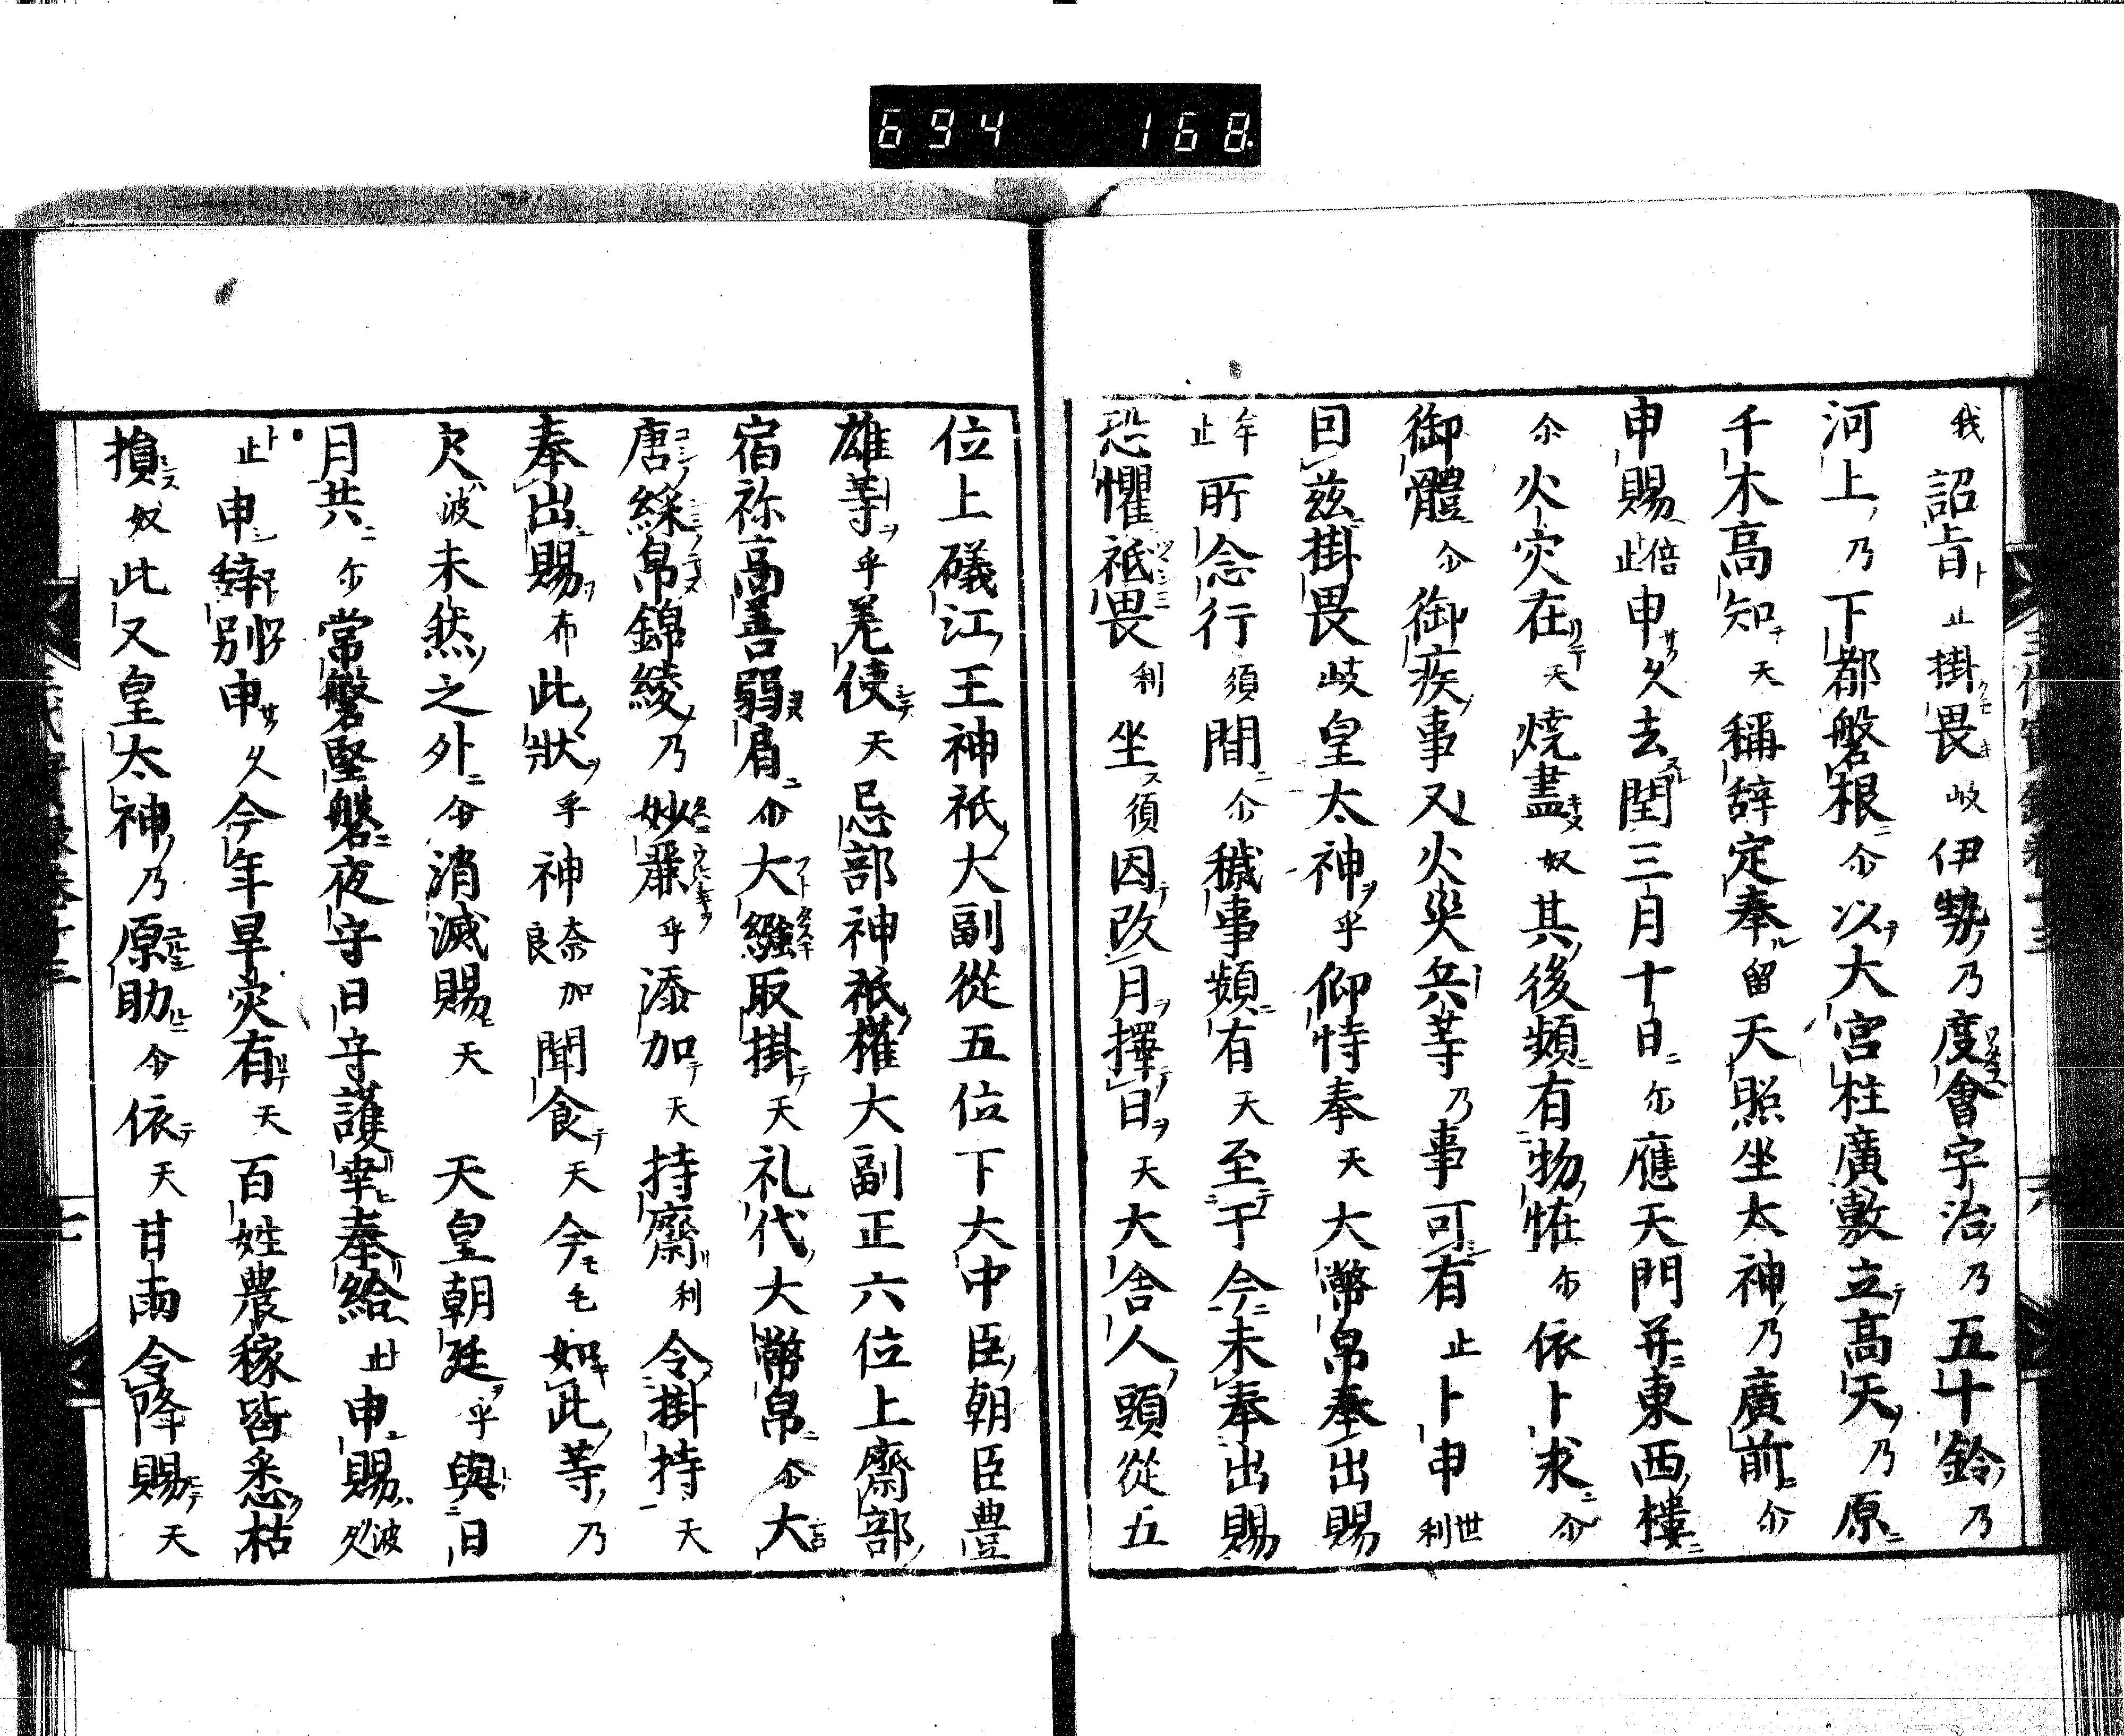 694 168
我詔旨止掛畏岐伊勢乃度會宇治乃五十鈴乃
河上乃下都磐根尒以大宮柱廣敷立高天乃原
千木高知天稱辞定奉留天照坐太神乃廣前尒
申賜倍止申久去閏三月十日尒應天門并東西樓
尒火灾在天燒盡奴其後頻有物恠尒依卜求尒
御體尒御疾事又火災兵等乃事可有止卜申世利
因茲掛畏岐皇太神乎仰恃奉天大幣帛奉出賜
牟止所念行須間尒穢事頻有天至于今未奉出賜
恐懼祗畏利坐須因改月擇日天大舍人頭從五
位上礒江王神祇大副從五位下大中臣朝臣豊
雄等乎差使天忌部神祇權大副正六位上齋部
宿祢高善弱肩尒大繦取掛天礼代大幣帛尒大
唐綵帛錦綾乃妙麗乎添加天持齋利令掛持天
奉出賜布此狀乎神奈加良聞食天今毛如此等乃
灾波未然之外尒消滅賜天　天皇朝廷乎與日
月共尒常磐堅磐夜守日守護幸奉給止申賜波久
止申辞別申久今年旱灾有天百姓農稼皆悉枯
損奴此又皇太神乃原助尒依天甘雨令降賜天
六
七